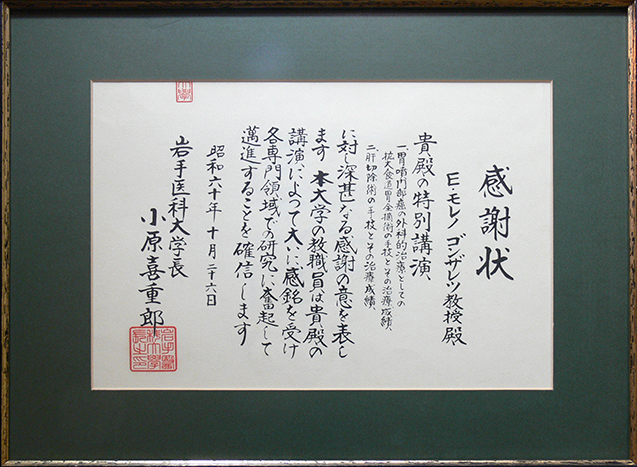 感謝状
E・モレノ ゴンザレツ教授殿
貴殿の特別講演、
一、胃噴門部癌の外科的治療としての
拡大食道胃全摘術の手技とその治療成績、
二、肝切除術の手技とその治療成績、
に対し深甚なる感謝の意を表し
ます 本大学の教職員は貴殿の
講演によつて大いに感銘を受け
各専門領域での研究に奮起して
邁進することを確信します
昭和六十年 十月 二十六日
岩手医科大学長
小原喜重郎